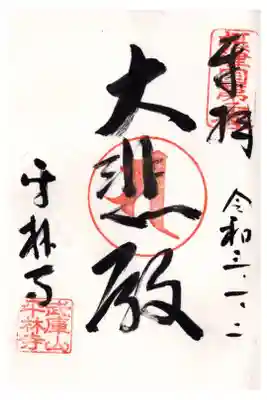 奉拝
令和三.一.二
大悲殿
平林寺
武庫山
平林寺